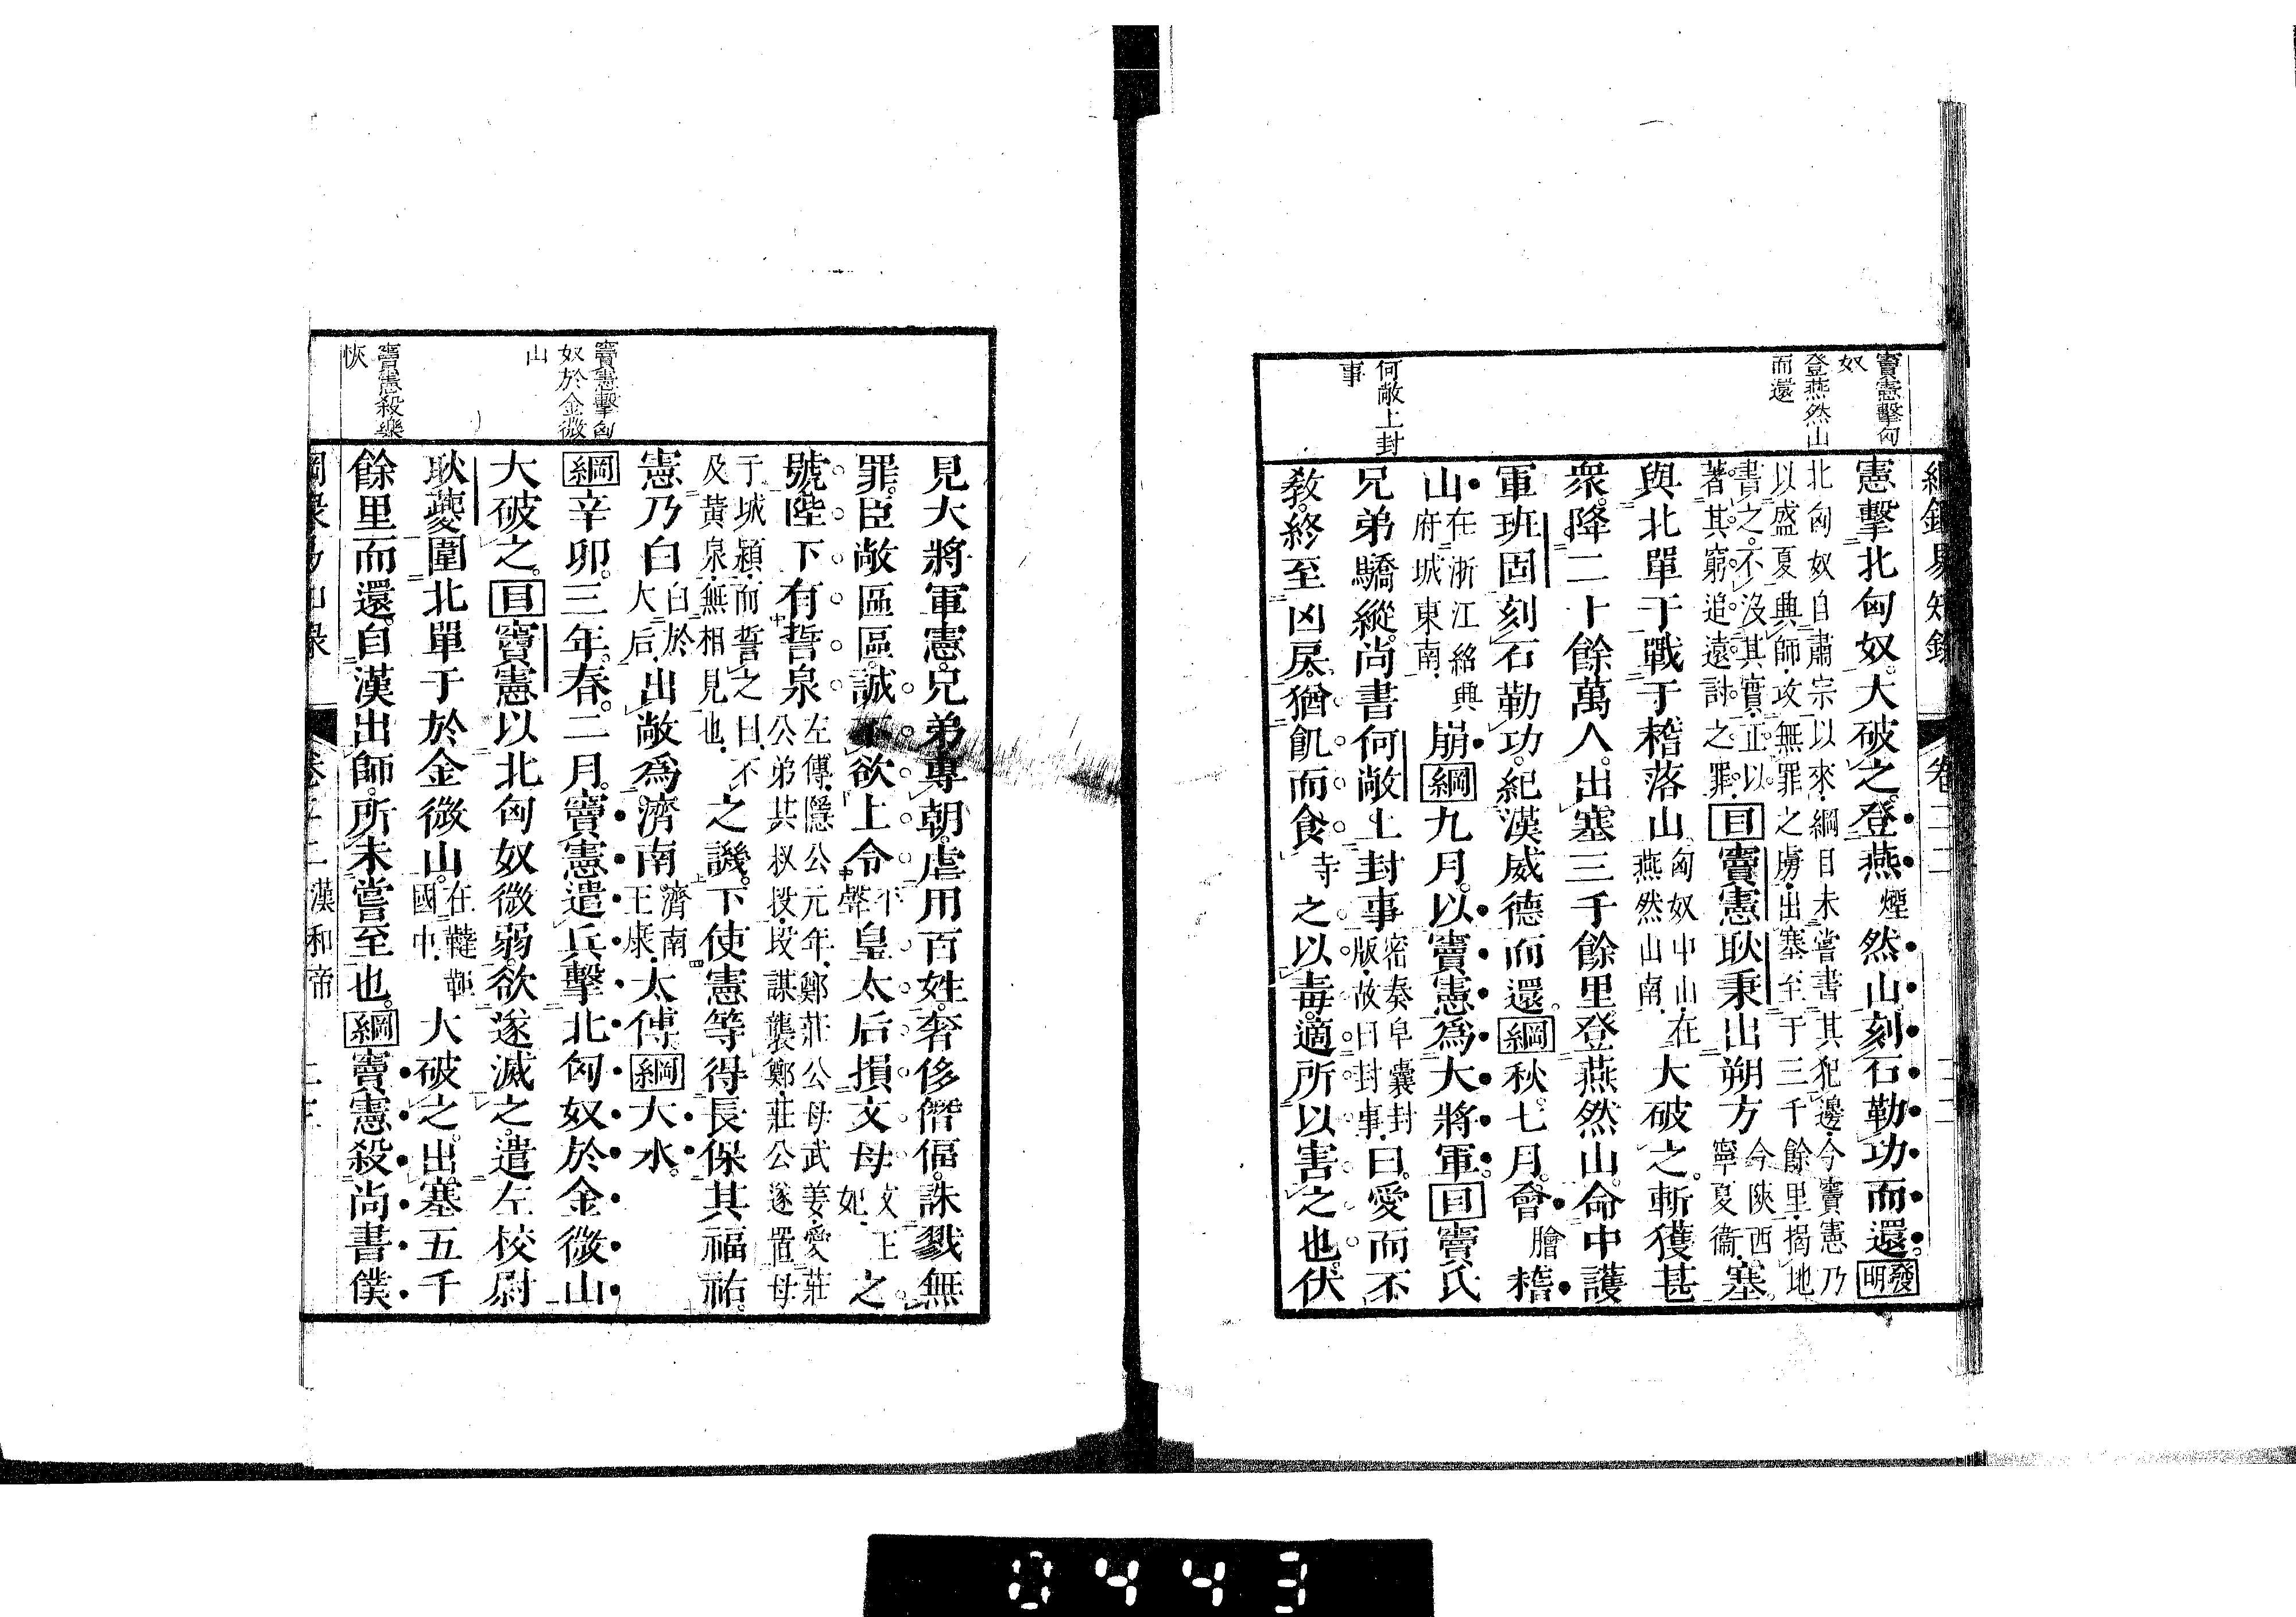 竇憲擊匈
奴
登燕然山
而還
何敞上封
事
憲擊北匈奴。大破之。登燕煙然山。刻石勒功而還。發明
北匈奴自肅宗以來。綱目未嘗書其犯邊。今竇憲乃
以盛夏興師。攻無罪之虜。出塞至于三千餘里。揭地
書之。不沒其實。正以
著其窮追遠討之罪。目竇憲耿秉出朔方今陝西寧夏衞。塞。
與北單于戰于稽落山。匈奴中山。在燕然山南。大破之。斬獲甚
衆。降二十餘萬人。出塞三千餘里。登燕然山。命中護
軍班固刻石勒功。紀漢威德而還。綱秋。七月。會膾稽
山在浙江紹興府城東南。崩。綱九月。以竇憲爲大將軍。目竇氏
兄弟驕縱。尚書何敞上封事密奏皁囊封版。故曰封事。曰。愛而不
敎。終至凶戾。猶飢而食寺之以毒。適所以害之也。伏
竇憲擊匈
奴於金微
山
竇憲殺樂
恢
見大將軍憲。兄弟專朝。虐用百姓。奢侈僭偪。誅戮無
罪。臣敞區區。誠不欲上令平聲。皇太后損文母文王妃。之
號。陛下有誓泉左傳。隱公元年。鄭莊公母武姜。愛莊公弟其叔段。段謀襲鄭。莊公遂置母
于城潁。而誓之曰。不及黃泉。無相見也。之譏。下使憲等得長保其福祐。
憲乃白白於大后。出敞爲濟南。濟南王康。太傅。綱大水。
綱辛卯。三年。春。二月。竇憲遣兵擊北匈奴於金微山。
大破之。目竇憲以北匈奴微弱。欲遂滅之。遣左校尉
耿夔圍北單于於金微山。在韃靼國中。大破之。出塞五千
餘里而還。自漢出師。所未嘗至也。綱竇憲殺尚書僕
漢和帝
0443